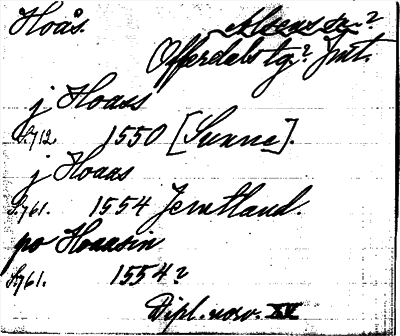 Hoås. Alsens tg.?
Offerdals tg? Jmt.
j Hoaas
S.712. 1550 [Sunne].
j Hoaas
S.761. 1554 Jemtland.
po Hoaasen
S.761. 1554?
Dipl. norv. XV